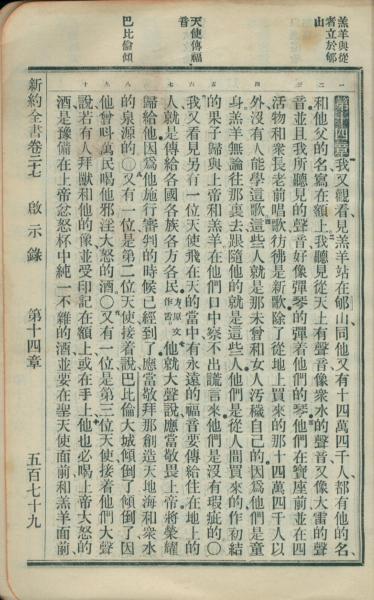 羔羊與從
者立於郇
山
天使傳福
音
巴比倫傾
一
二
三
四
五
六
七
八
九
十
第十四章我又觀看見羔羊站在郇山同他又有十四萬四千人都有他的名
和他父的名寫在額上我聽見從天上有聲音像衆水的聲音又像大雷的聲
音並且我所聽見的聲音好像彈琴的彈着他們的琴他們在寶座前並在四
活物和衆長老前唱歌彷彿是新歌除了從地上買來的那十四萬四千人以
外沒有人能學這歌這些人就是那未曾和女人污穢自己的因爲他們是童
身羔羊無論往那裏去跟隨他的就是這些人他們是從人間買來的作初結
的果子歸與上帝和羔羊在他們口中察不出謊言來他們是沒有瑕疵的〇
我又看見另有一位天使飛在天的當中有永遠的福音要傳給住在地上的
人就是傳給各國各族各方各民方原文作舌他就大聲說應當敬畏上帝將榮耀
歸給他因爲他施行審判的時候已經到了應當敬拜那創造天地海和衆水
的泉源的〇又有一位是第二位天使接着說巴比倫大城傾倒了傾倒了因
他曾叫萬民喝他邪淫大怒的酒〇又有一位是第三位天使接着他們大聲
說若有人拜獸和他的像並受印記在額上或在手上他也必喝上帝大怒的
酒是豫備在上帝忿怒杯中純一不雜的酒並要在聖天使面前和羔羊面前
新約全書卷二十七 啟示錄 第十四章 五百七十九